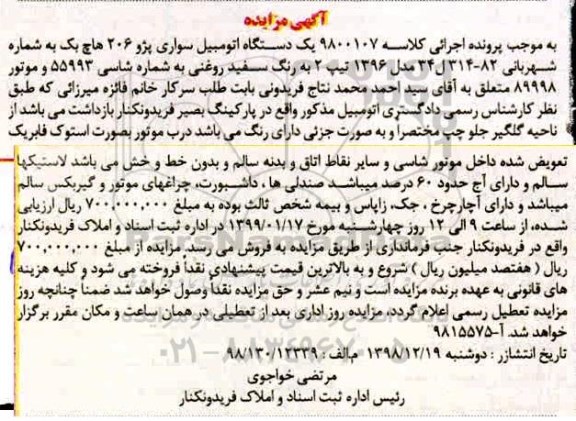 آگهی مزایده
به موجب پرونده اجرائی کلاسه ۹۸۰۰۱۰۷ یک دستگاه اتومبیل سواری پژو ۲۰۶ هاچ بک به شماره
شهربانی ۸۲-۳۱۴ ل۳۴ مدل ۱۳۹۶ تیپ ۲ به رنگ سفید روغنی به شماره شاسی ۵۵۹۹۳ و موتور
۸۹۹۹۸ متعلق به آقای سید احمد محمد نتاج فریدونی بابت طلب سرکار خانم فائزه میرزائی که طبق
نظر کارشناس رسمی دادگستری اتومبیل مذکور واقع در پارکینگ بصیر فریدونکنار بازداشت می باشد از
ناحیه گلگیر جلو چپ مختصرا و به صورت جزئی دارای رنگ می باشد درب موتور بصورت استوک فابریک
تعویض شده داخل موتور شاسی و سایر نقاط اتاق و بدنه سالم و بدون خط و خش می باشد لاستیکها
سالم و دارای آج حدود ۶۰ درصد میباشد صندلی ها ، داشبورت، چراغهای موتور و گیربکس سالم
میباشد و دارای آچارچرخ ، جک، زاپاس و بیمه شخص ثالث بوده به مبلغ ۷۰۰,۰۰۰,۰۰۰ ریال ارزیابی
شده، از ساعت ۹ الی ۱۲ روز چهارشنبه مورخ ۱۳۹۹/۰۱/۱۷ در اداره ثبت اسناد و املاک فریدونکنار
واقع در فریدونکنار جنب فرمانداری از طریق مزایده به فروش می رسد. مزایده از مبلغ ۷۰۰,۰۰۰,۰۰۰
ریال ( هفتصد میلیون ریال ) شروع و به بالاترین قیمت پیشنهادی نقداً فروخته می شود و کلیه هزینه
های قانونی به عهده برنده مزایده است و نیم عشر و حق مزایده نقداً وصول خواهد شد ضمناً چنانچه روز
مزایده تعطیل رسمی اعلام گردد، مزایده روز اداری بعد از تعطیلی در همان ساعت و مکان مقرر برگزار
خواهد شد. آ-۹۸۱۵۵۷۵
تاریخ انتشارز : دوشنبه ۱۳۹۸/۱۲/۱۹ م.الف : ۹۸/۱۳۰/۱۲۳۳۹
مرتضی خواجوی
رئیس اداره ثبت اسناد و املاک فریدونکنار
۰۲۱-۸۸۳۴۹۶۷۰-۵